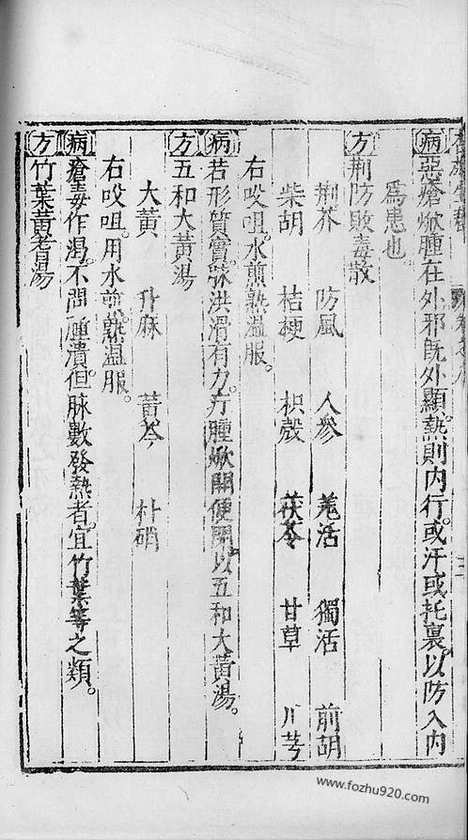 病惡瘡焮腫在外邪既外顯熱則內行或汗或托裏以防入內
為患也
方荆防敗毒散
荆芥 防風 人參 羗活 獨活 前胡
柴胡 桔梗 枳殼 茯苓 甘草 川芎
右㕮咀水煎熟温服
病若形質實脉洪滑有力疔腫焮開便閉以五和大黄湯
方五和大黄湯
大黄 升麻 黄芩 朴硝
右㕮咀用水煎熟温服
病瘡毒作渴不問腫潰但脉數發熱者宜竹葉等之類
方竹葉黄耆湯
www.fozhu920.com